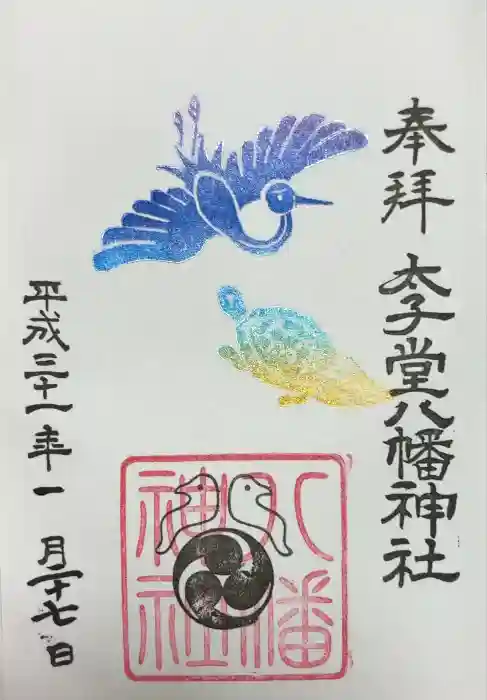 奉拝
太子堂八幡神社
八幡
神社
平成三十一年一月二十七日